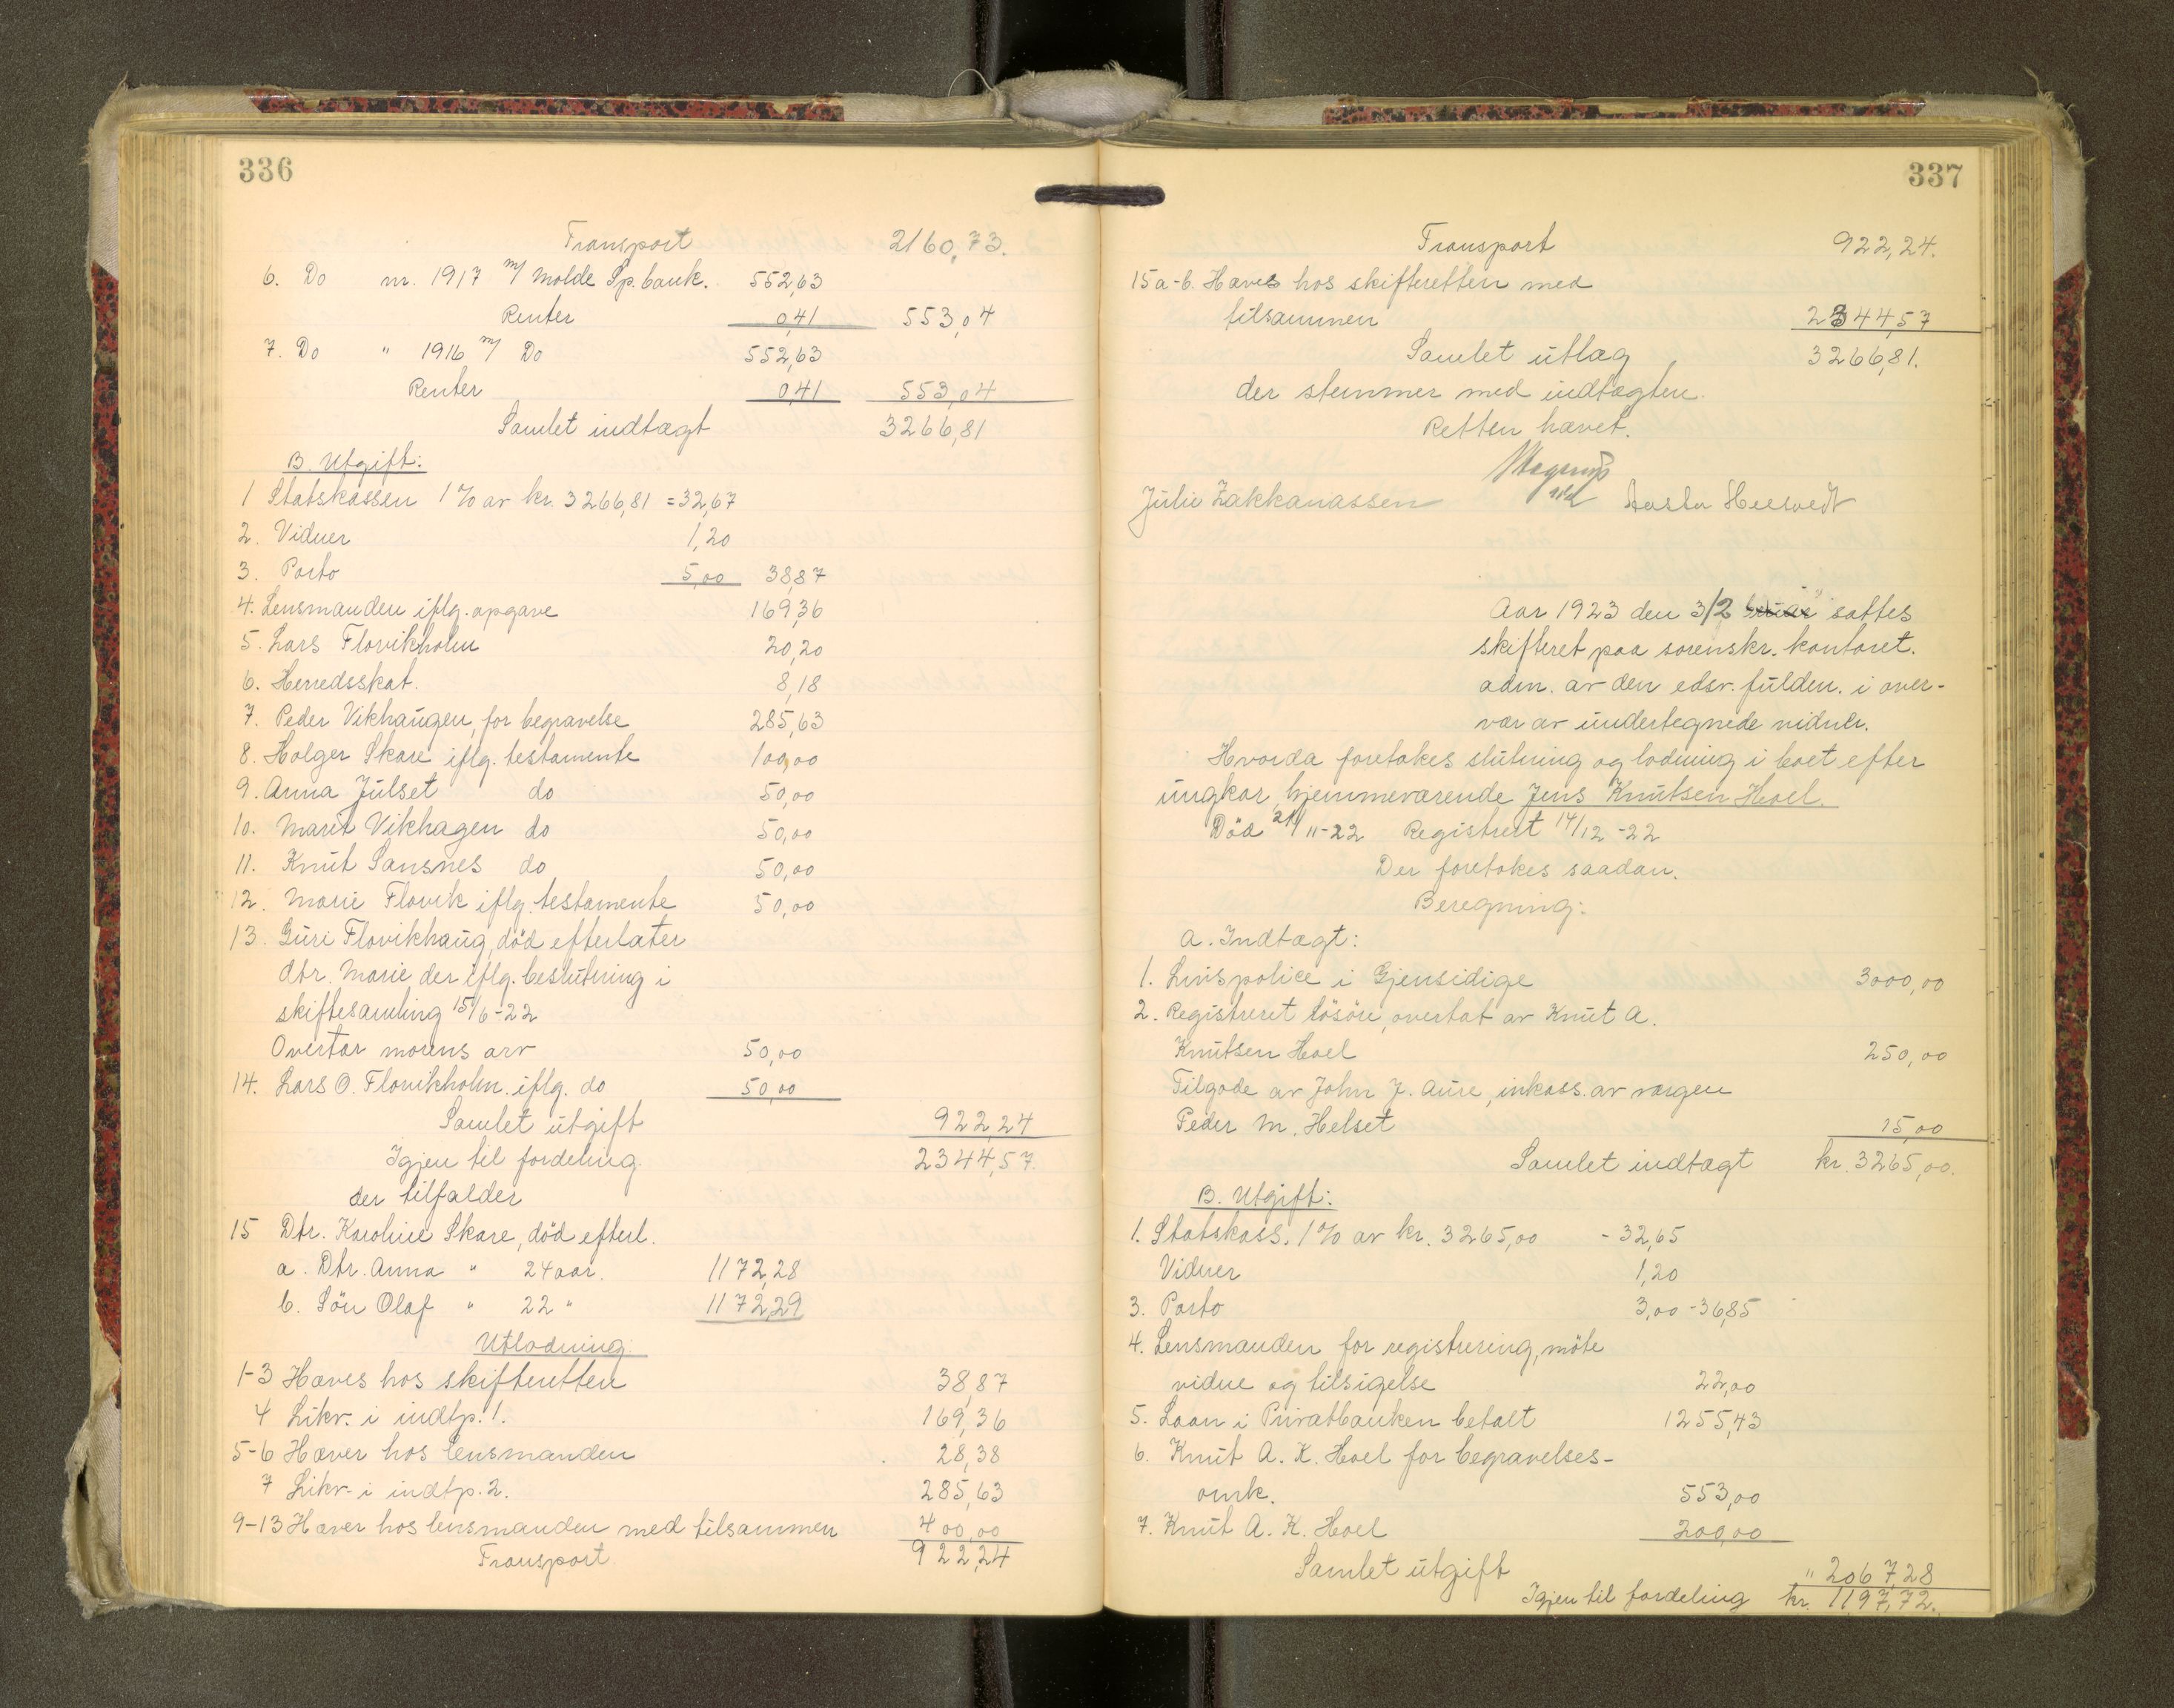 336
Transport 2160,73.
6. Do nr. 1917 m/ Molde Sp.bank. 552,63
Renter 0,41 553,04
7. Do " 1916 m/ Do 552,63
Renter 0,41 553,04
Samlet indtægt 3266,81
B. Utgift:
1 Statskassen 1% av kr. 3266,81 = 32,67
2. Vidner 1,20
3. Porto 5,00 38,87
4. Lensmanden iflg. opgave 169,36
5. Lars Flovikholm 20,20
6. Herredsskat. 8,18
7. Peder Vikhaugen, for begravelse 285,63
8. Holger Skare iflg. testamente 100,00
9. Anna Julset do 50,00
10. Marit Vikhagen do 50,00
11. Knut Sansnes do 50,00
12. Marie Flovik iflg. testamente 50,00
13. Guri Flovikhaug, död efterlater
dtr. Marie der iflg. beslutning i
skiftesamling 15/6-22
Overtar morens arv 50,00
14. Lars O. Flovikholm. iflg. do 50,00
Samlet utgift 922,24
Igjen til fordeling. 2344,57.
der tilfalder
15 Dtr. Karoline Skare, död efterl.
a. Dtr. Anna " 24 aar. 1172,28
b. Sön Olaf " 22 " 1172,29
Utlodning.
1-3 Hæves hos skifteretten 38,87
4 Likv. i indtp. 1. 169,36
5-6 Hæver hos lensmanden 28,38
7 Likv. i indtp. 2. 285,63
9-13 Hæver hos lensmanden med tilsammen 400,00
Transport 922,24
337
Transport 922,24.
15a-b. Hæves hos skifteretten med
tilsammen 2344,57
Samlet utlæg 3266,81.
der stemmer med indtægten.
Retten hævet.
Julie Zakkariassen
Aar 1923 den 3/2 sattes
skifteret paa sorenskr. kontoret.
adm. av den edsv. fuldm. i over-
vær av undertegnede vidner.
Hvorda foretokes slutning og lodning i boet efter
ungkar, hjemmeværende Jens Knutsen Hoel.
Död 21/11-22 Registrert 14/12-22
Der foretokes saadan.
Beregning:
A. Indtægt:
1. Livspolice i Gjensidige 3000,00
2. Registreret lösöre, overtat av Knut A.
Knutsen Hoel 250,00
Tilgode av John J. Aure, inkass. av vergen
Peder M. Helset 15,00
Samlet indtægt kr. 3265,00.
B. Utgift:
1. Statskass. 1% av kr. 3265,00 - 32,65
Vidner 1,20
3. Porto 3,00 - 36,85
4. Lensmanden for registrering, möte
vidne og tilsigelse 22,00
5. Laan i Privatbanken betalt 1255,43
6. Knut A. K. Hoel for begravelses-
omk. 553,00
7. Knut A. K. Hoel 200,00
Samlet utgift " 2067,28
Igjen til fordeling kr. 1197,72.